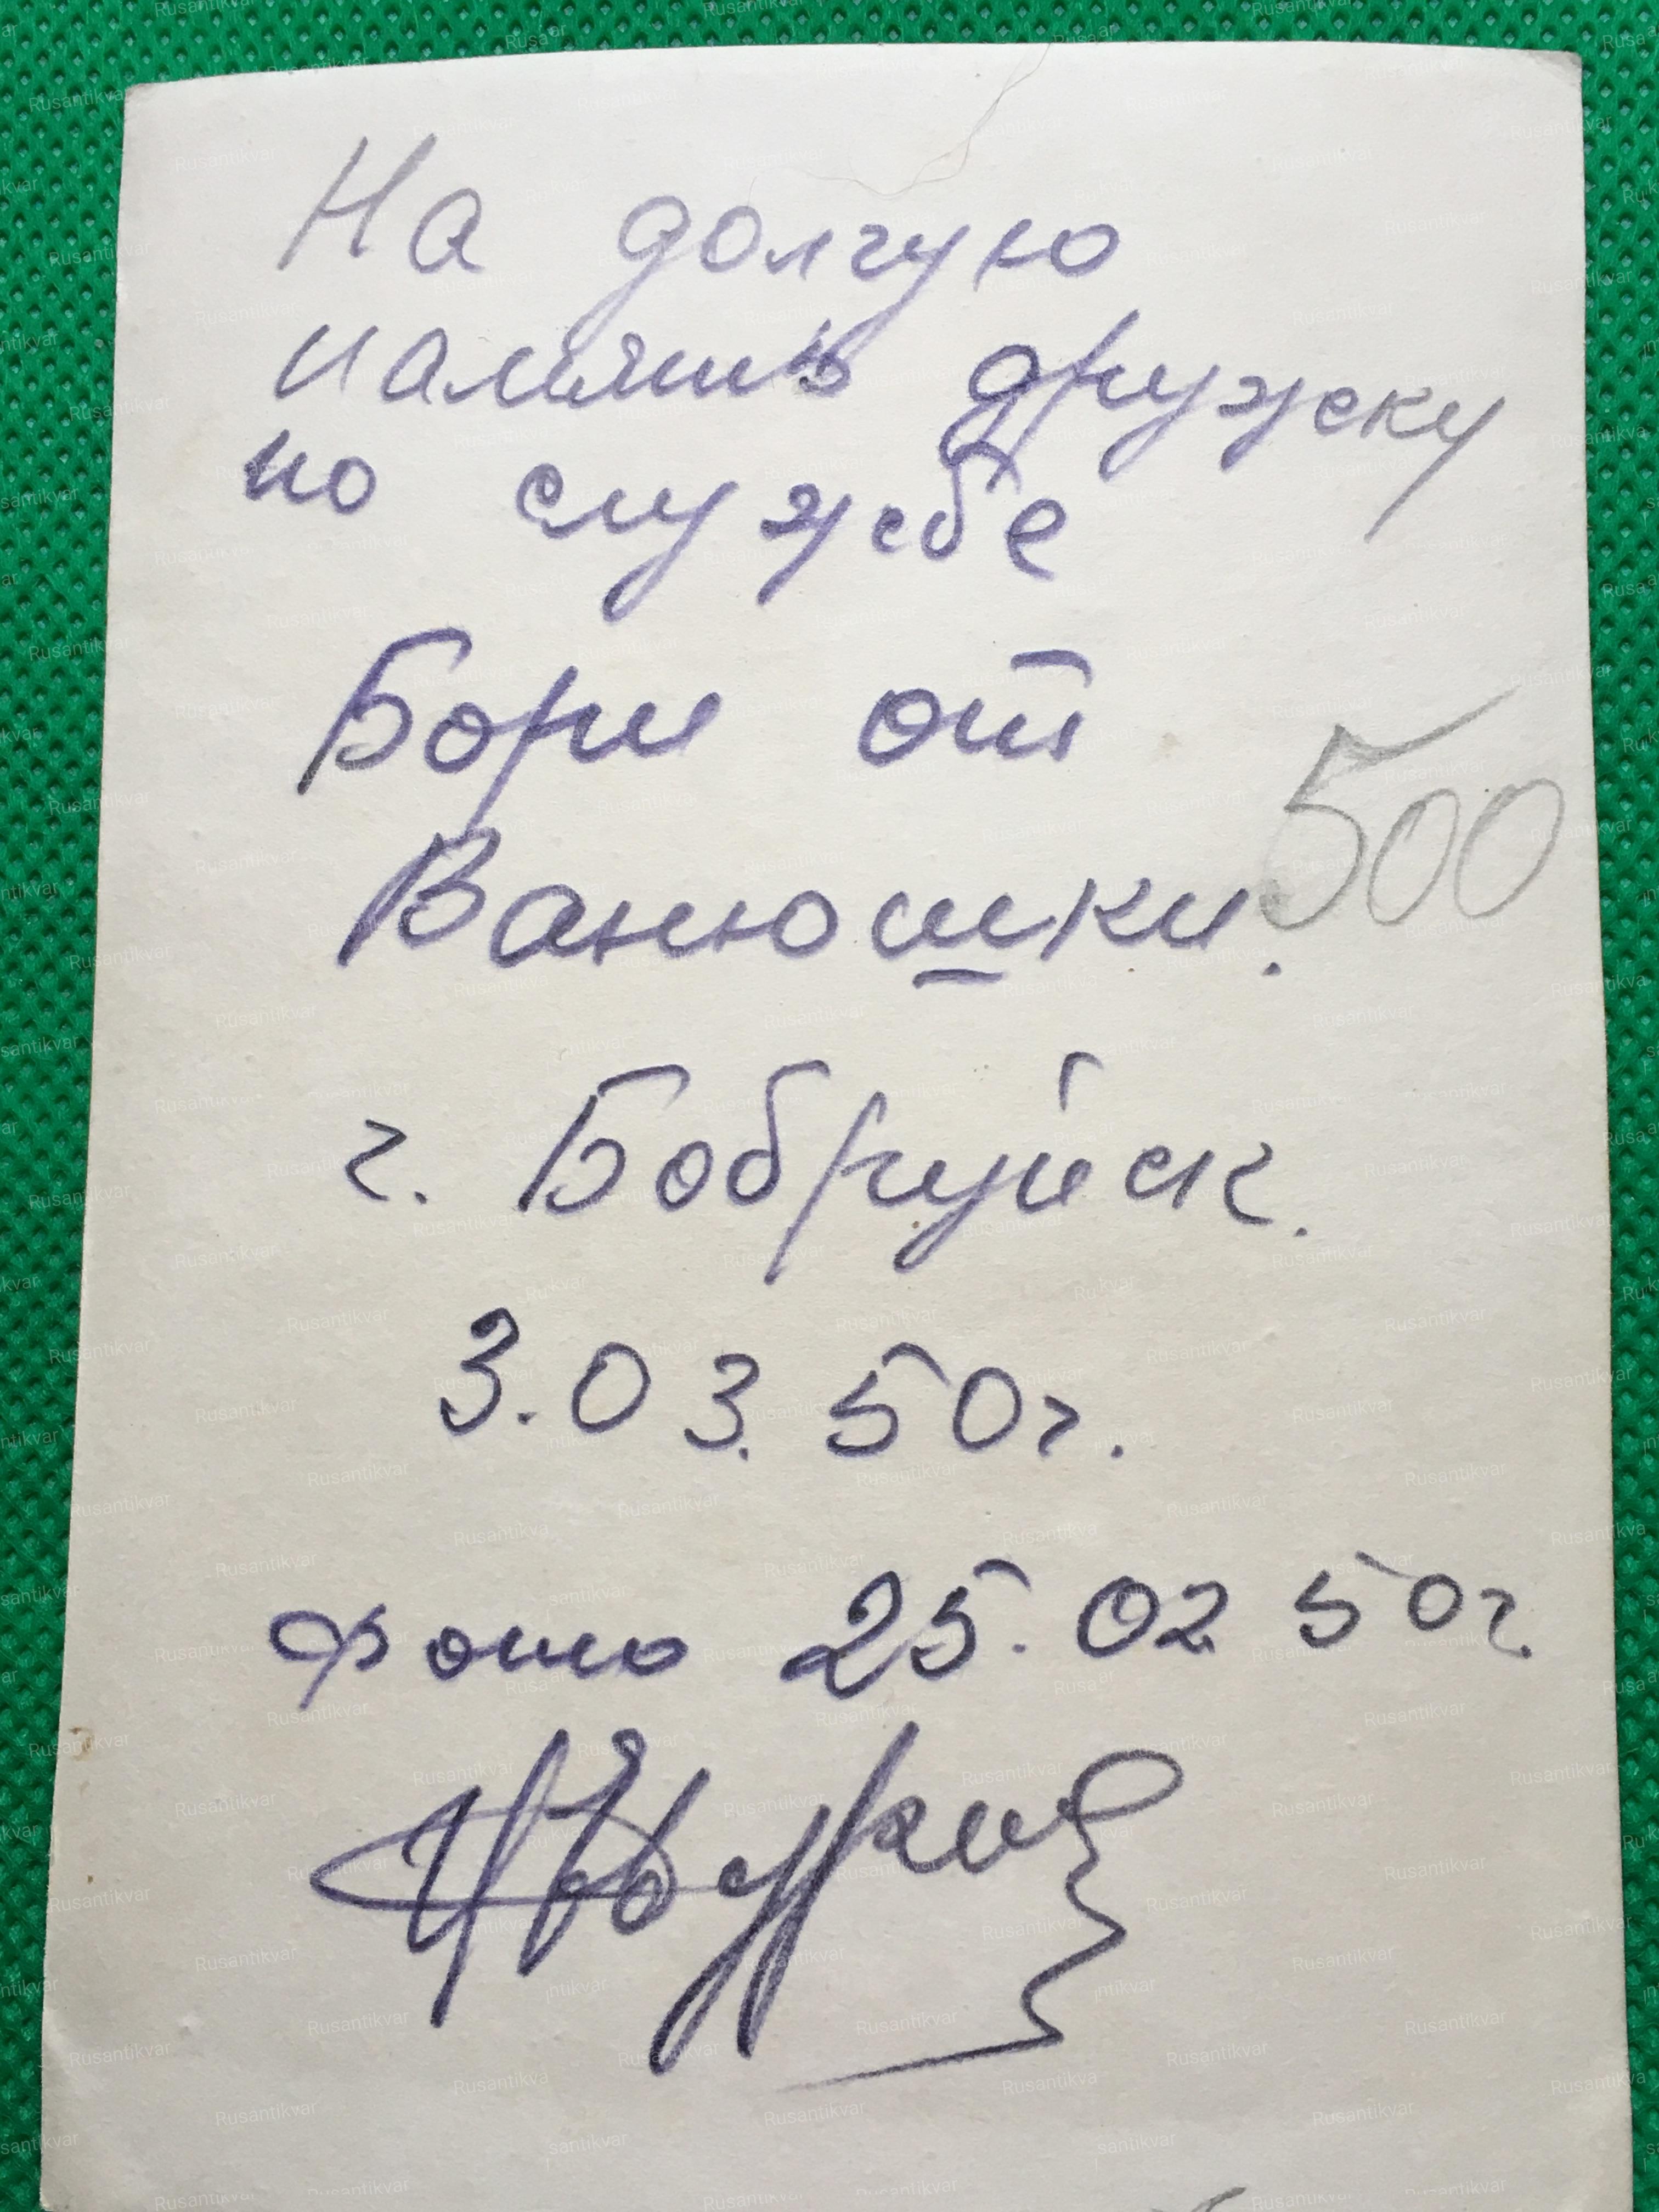 На долгую
память дружку
по службе
Бори от
Ванюшки.
500
г. Бобруйск.
3.03.50г.
фото 25.02 50г.